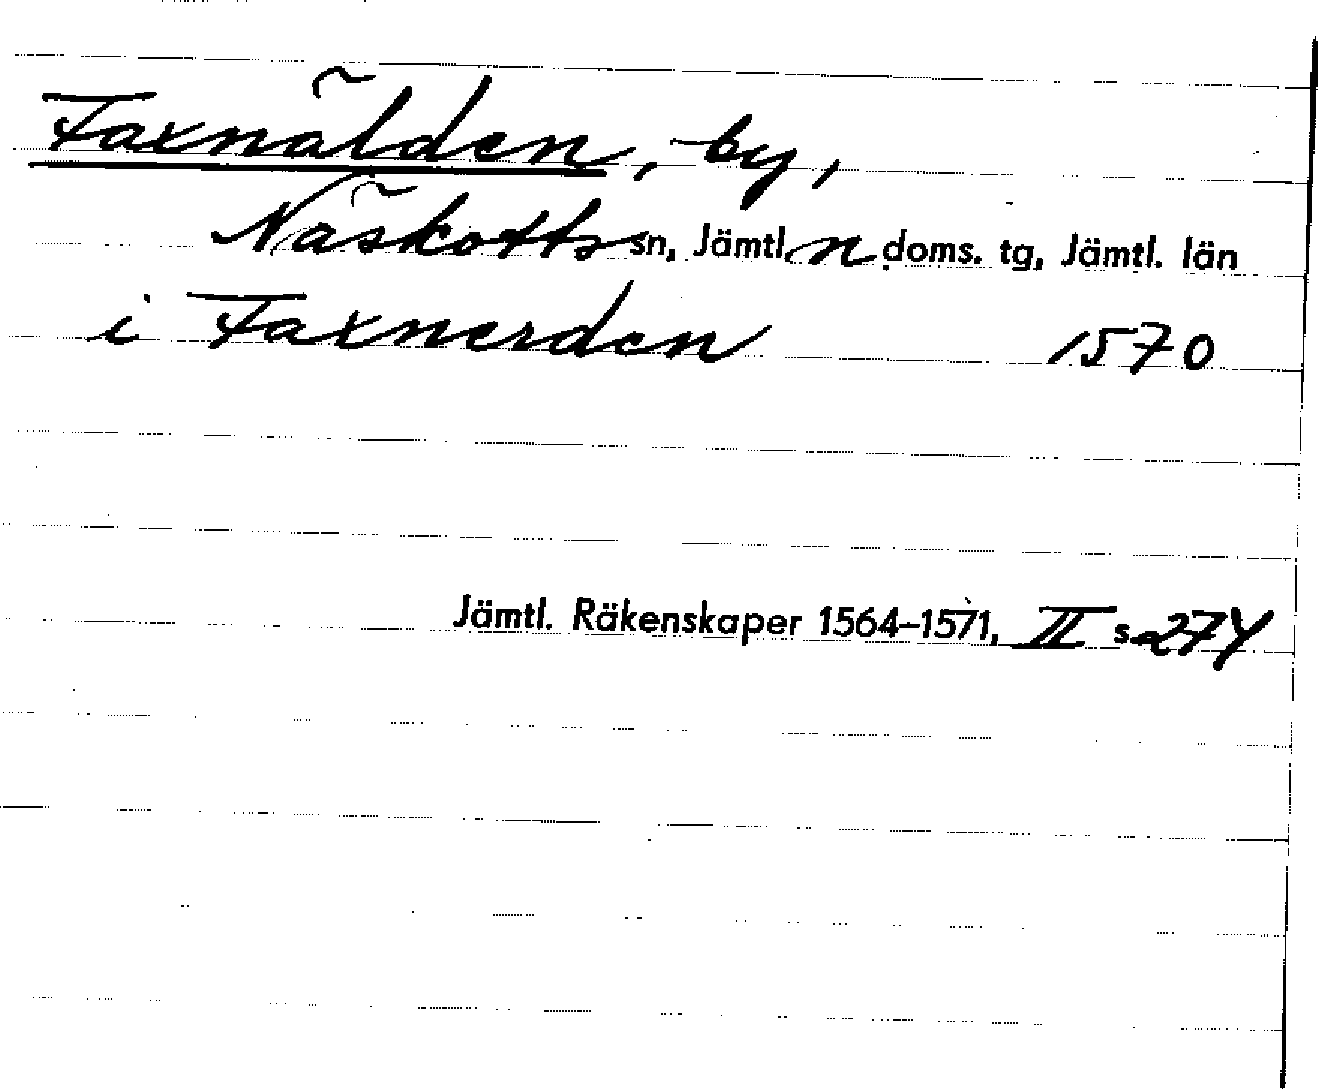 Faxnälden, by,
Näskotts sn, Jämtl. n doms. tg, Jämtl. län
i Faxnerden 1570
Jämtl. Räkenskaper 1564–1571, II s. 274